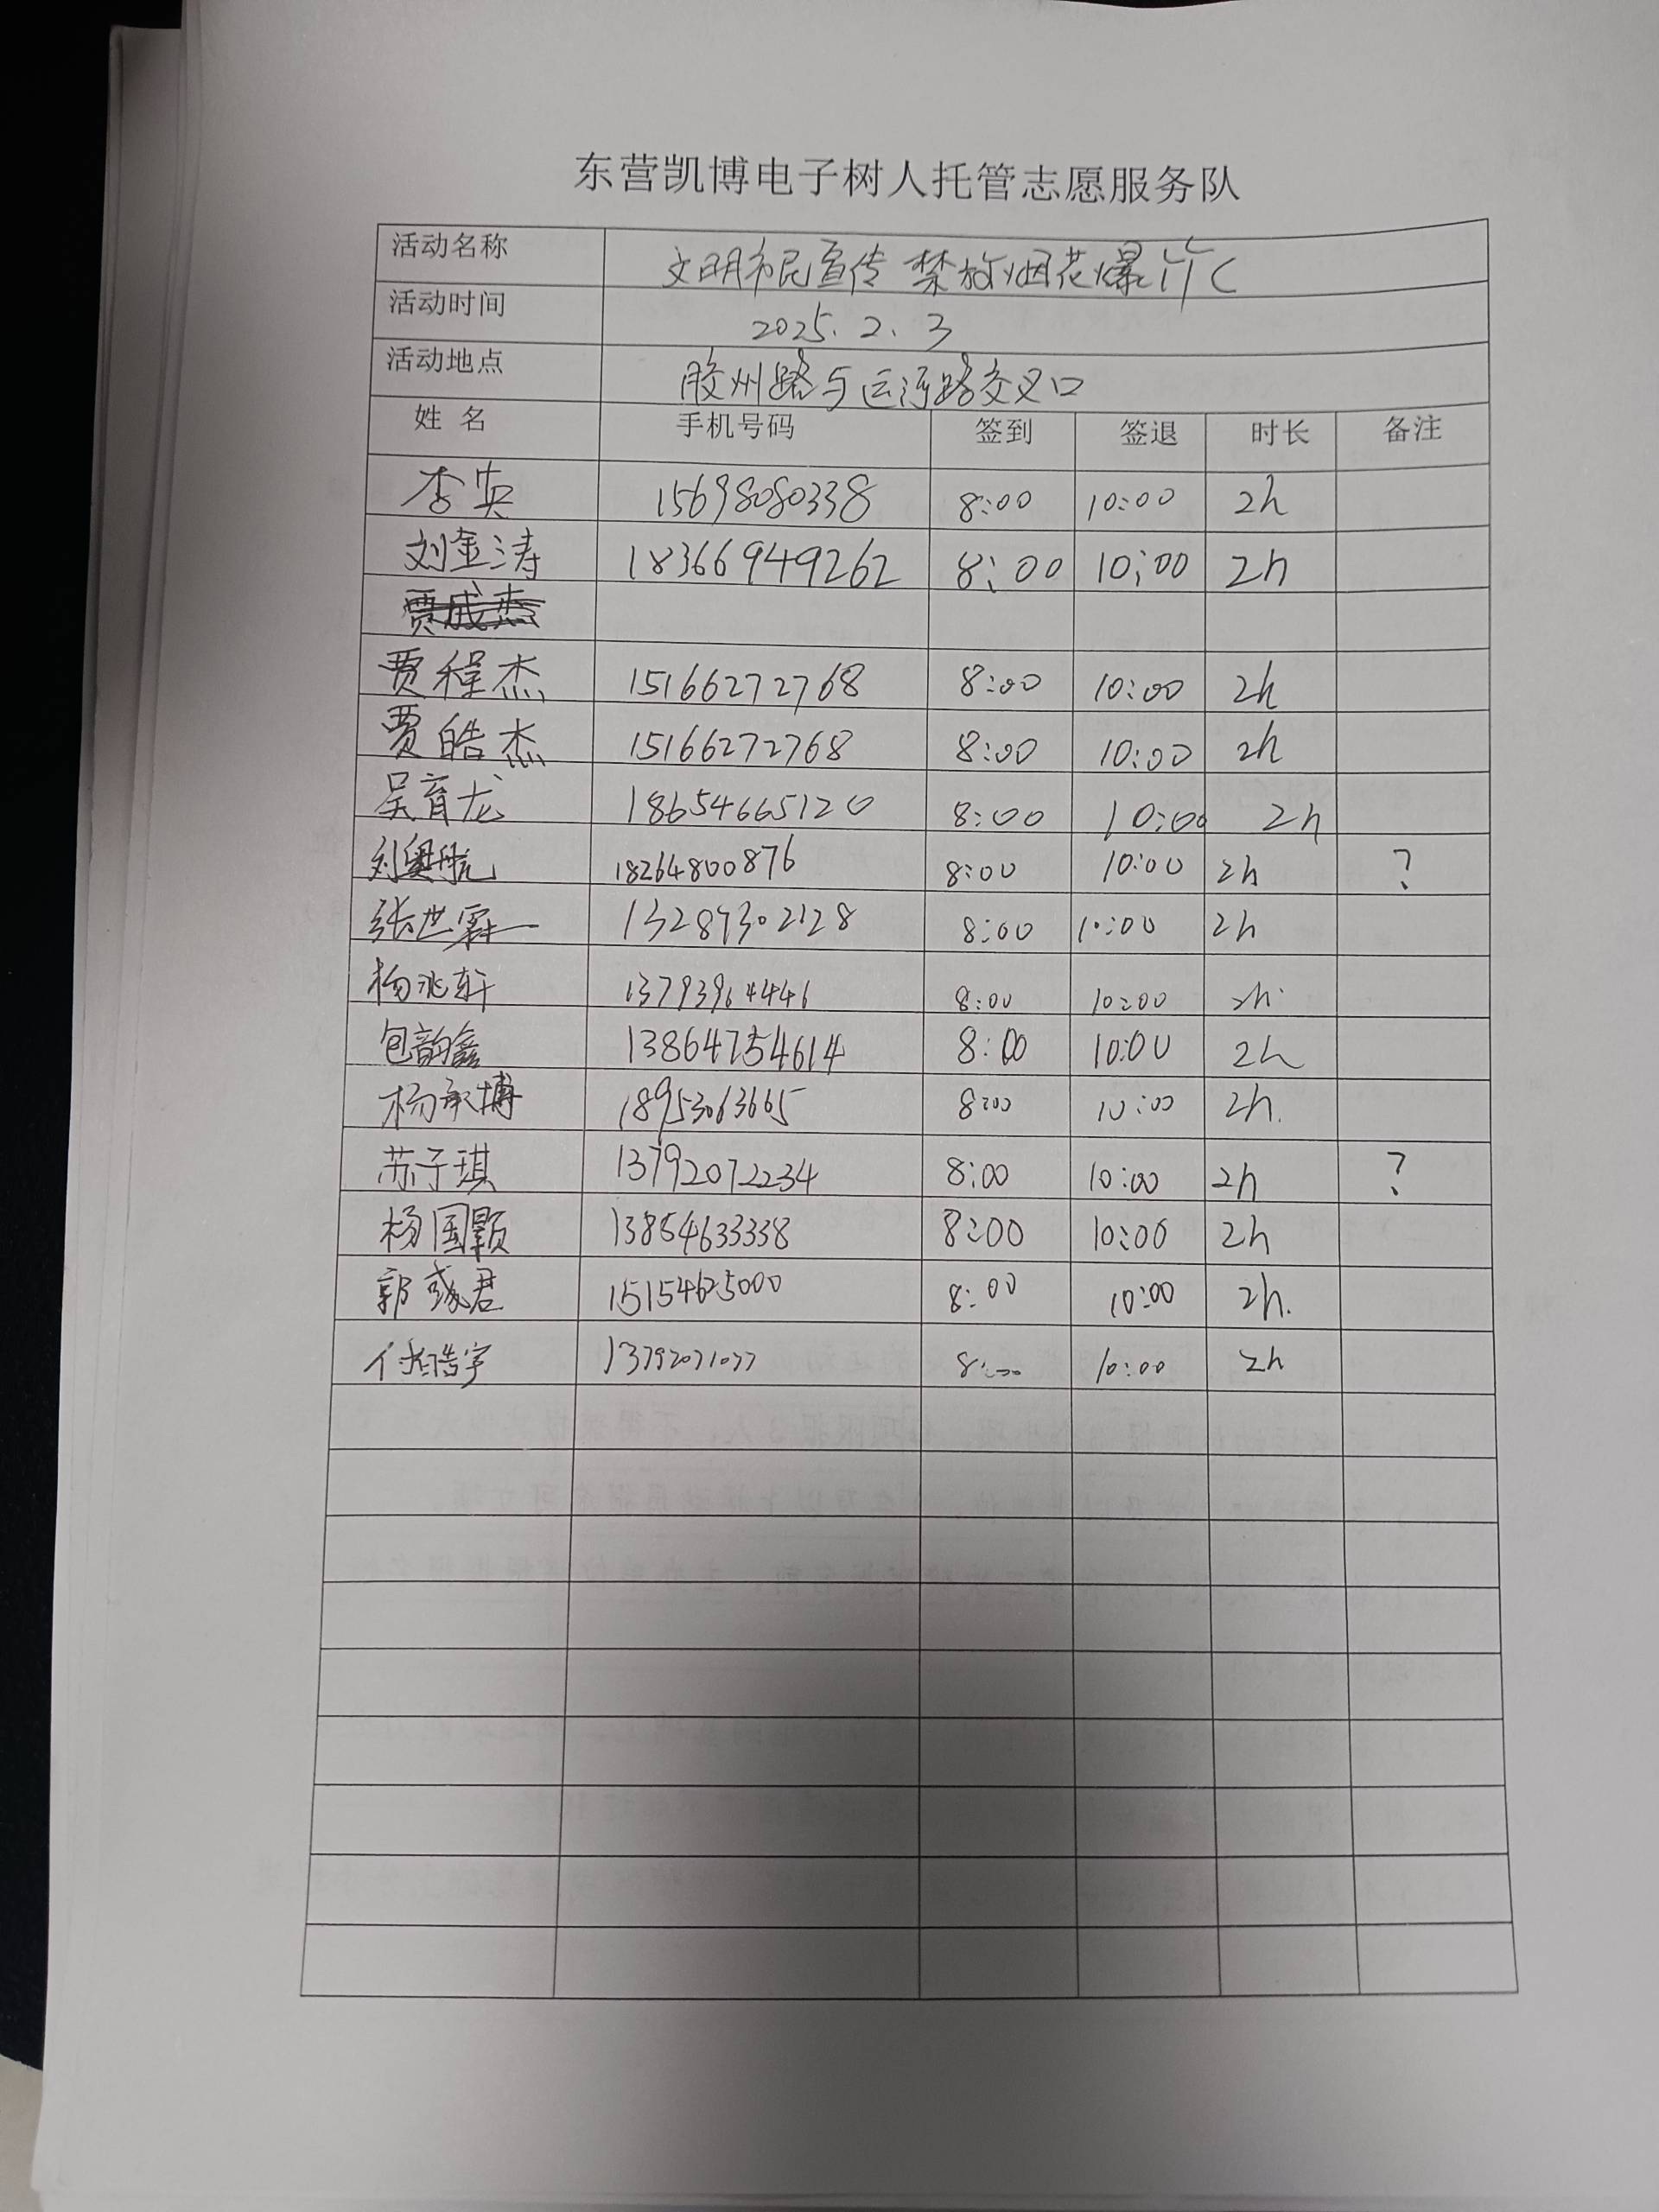 东营凯博电子树人托管志愿服务队
活动名称 文明市民宣传 禁放烟花爆竹C
活动时间 2025.2.3
活动地点 胶州路与运河路交叉口
姓名 手机号码 签到 签退 时长 备注
李英 15698080338 8:00 10:00 2h
刘金涛 18366949262 8:00 10:00 2h
贾成杰
贾程杰 15166272768 8:00 10:00 2h
贾皓杰 15166272768 8:00 10:00 2h
吴育龙 18654665120 8:00 10:00 2h
刘奥航 18264800876 8:00 10:00 2h ?
张世霖 13287302128 8:00 10:00 2h
杨兆轩 13793964446 8:00 10:00 2h
包韵鑫 13864754614 8:00 10:00 2h
杨承博 18953063665 8:00 10:00 2h.
苏子琪 13792072234 8:00 10:00 2h ?
杨国颢 13854633338 8:00 10:00 2h
郭彧君 15154625000 8:00 10:00 2h.
付皓宇 13792071077 8:00 10:00 2h